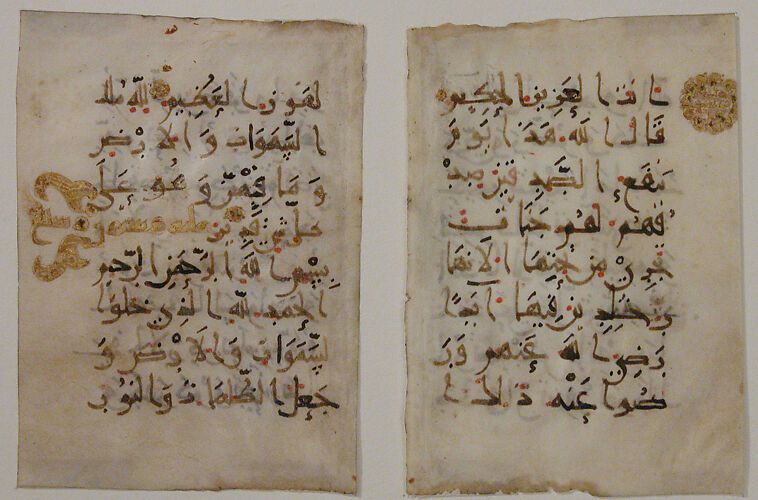 انت العزيز الحكيم
قال الله هذا يوم
ينفع الصدقين صد
قهم لهم جنات
تجري من تحتها الانها
ر خلدين فيها ابدا
رضي الله عنهم ور
ضوا عنه ذلك ا
لفوز العظيم لله ملك
السموات والارض
وما فيهن وهو على
كل شيء قدير
بسم الله الرحمن الرحيم
الحمد لله الذي خلق ا
لسموات والارض و
جعل الظلمات والنور